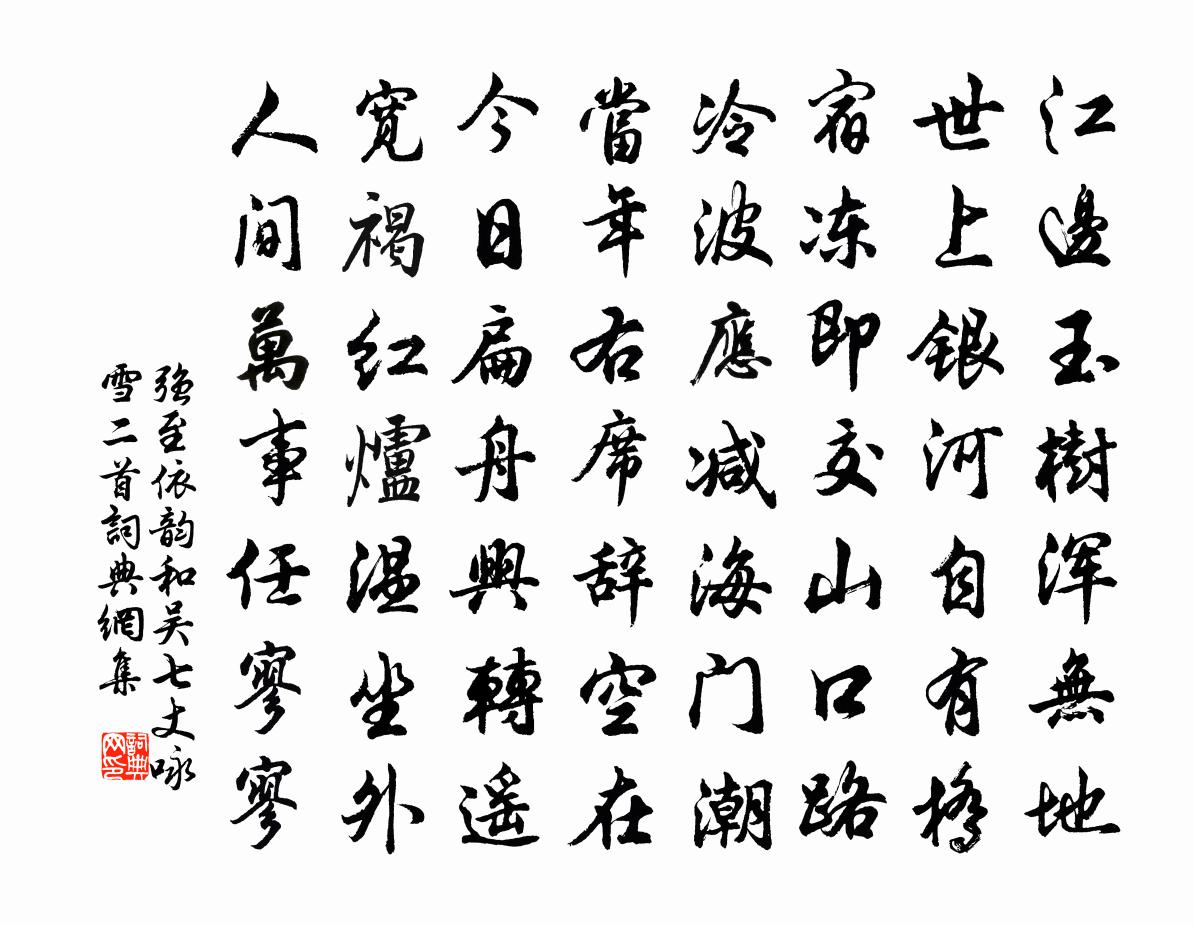 江邊玉樹浑無地
世上銀河自有橋
宿冻即交山口路
冷波應减海门潮
當年右席辞空在
今日扁舟興轉遥
寛褐红爐温坐外
人间萬事任寥寥
强至依韵和吴七丈咏
雪二首詞典網集
詞典
网印